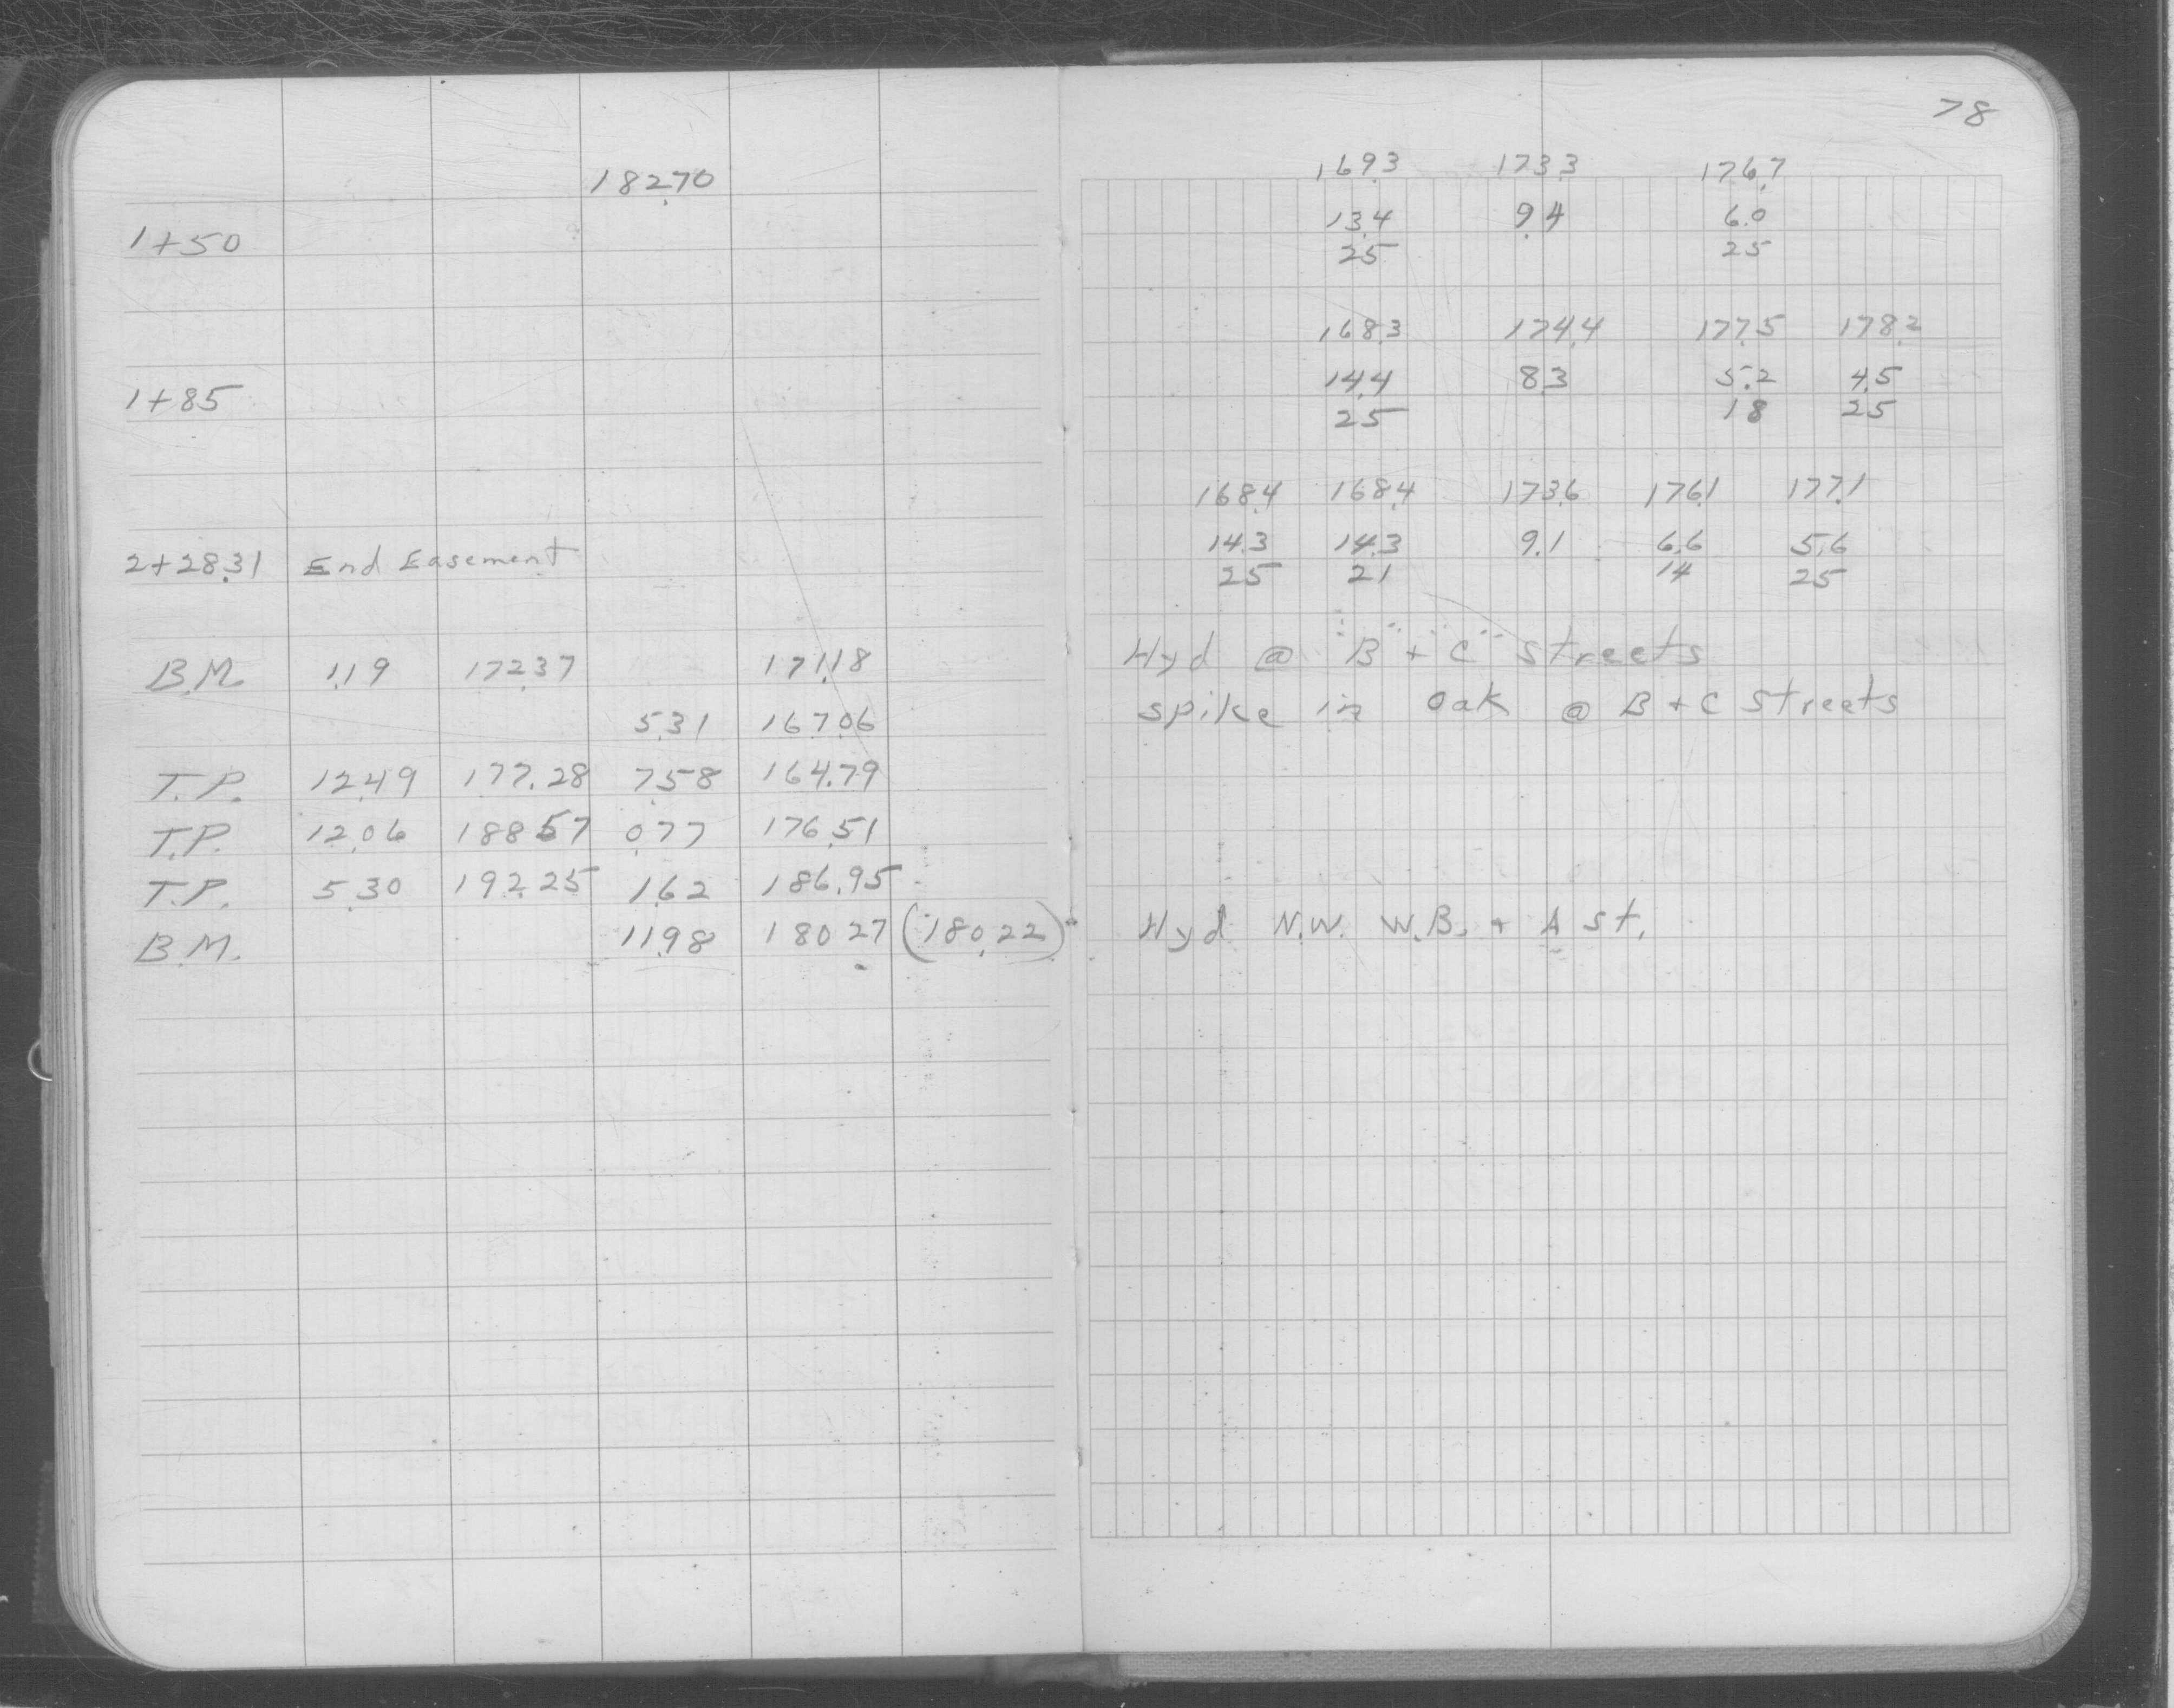 78
182.70
169.3 173.3 176.7
1+50 13.4 9.4 6.0
25 25
168.3 174.4 177.5 178.2
1+85 14.4 8.3 5.2 4.5
25 18 25
168.4 168.4 173.6 176.1 177.1
2+28.31 End Easement 14.3 14.3 9.1 6.6 5.6
25 21 14 25
B.M. 1.19 172.37 171.18 Hyd @ "B" + "C" Streets
5.31 167.06 spike in Oak @ B + C Streets
T.P. 12.49 177.28 7.58 164.79
T.P. 12.06 188.57 0.77 176.51
T.P. 5.30 192.25 1.62 186.95
B.M. 11.98 180.27 (180.22) Hyd N.W. W.B. + A St.